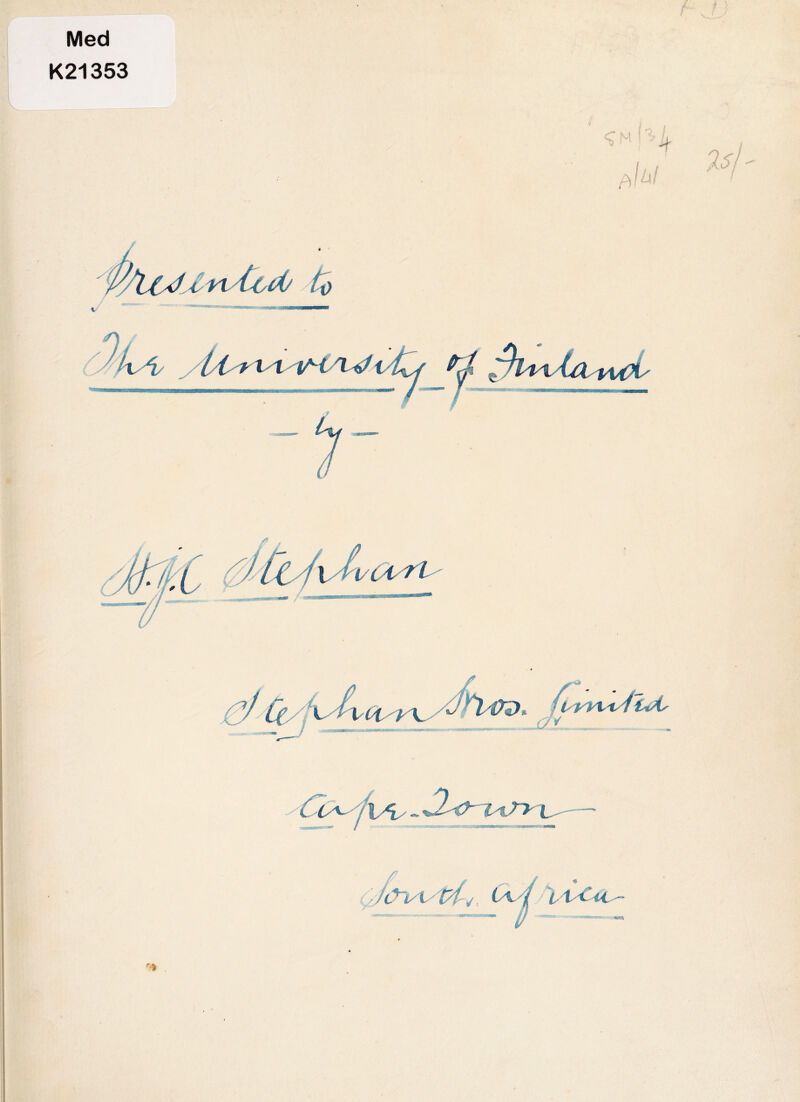 Med
K21353
SM/34
A/41
25/-
Presented to
The University of Finland
— by —
H.J.C Stephan
Stephan Bros. Limited
Cape-Town
South Africa